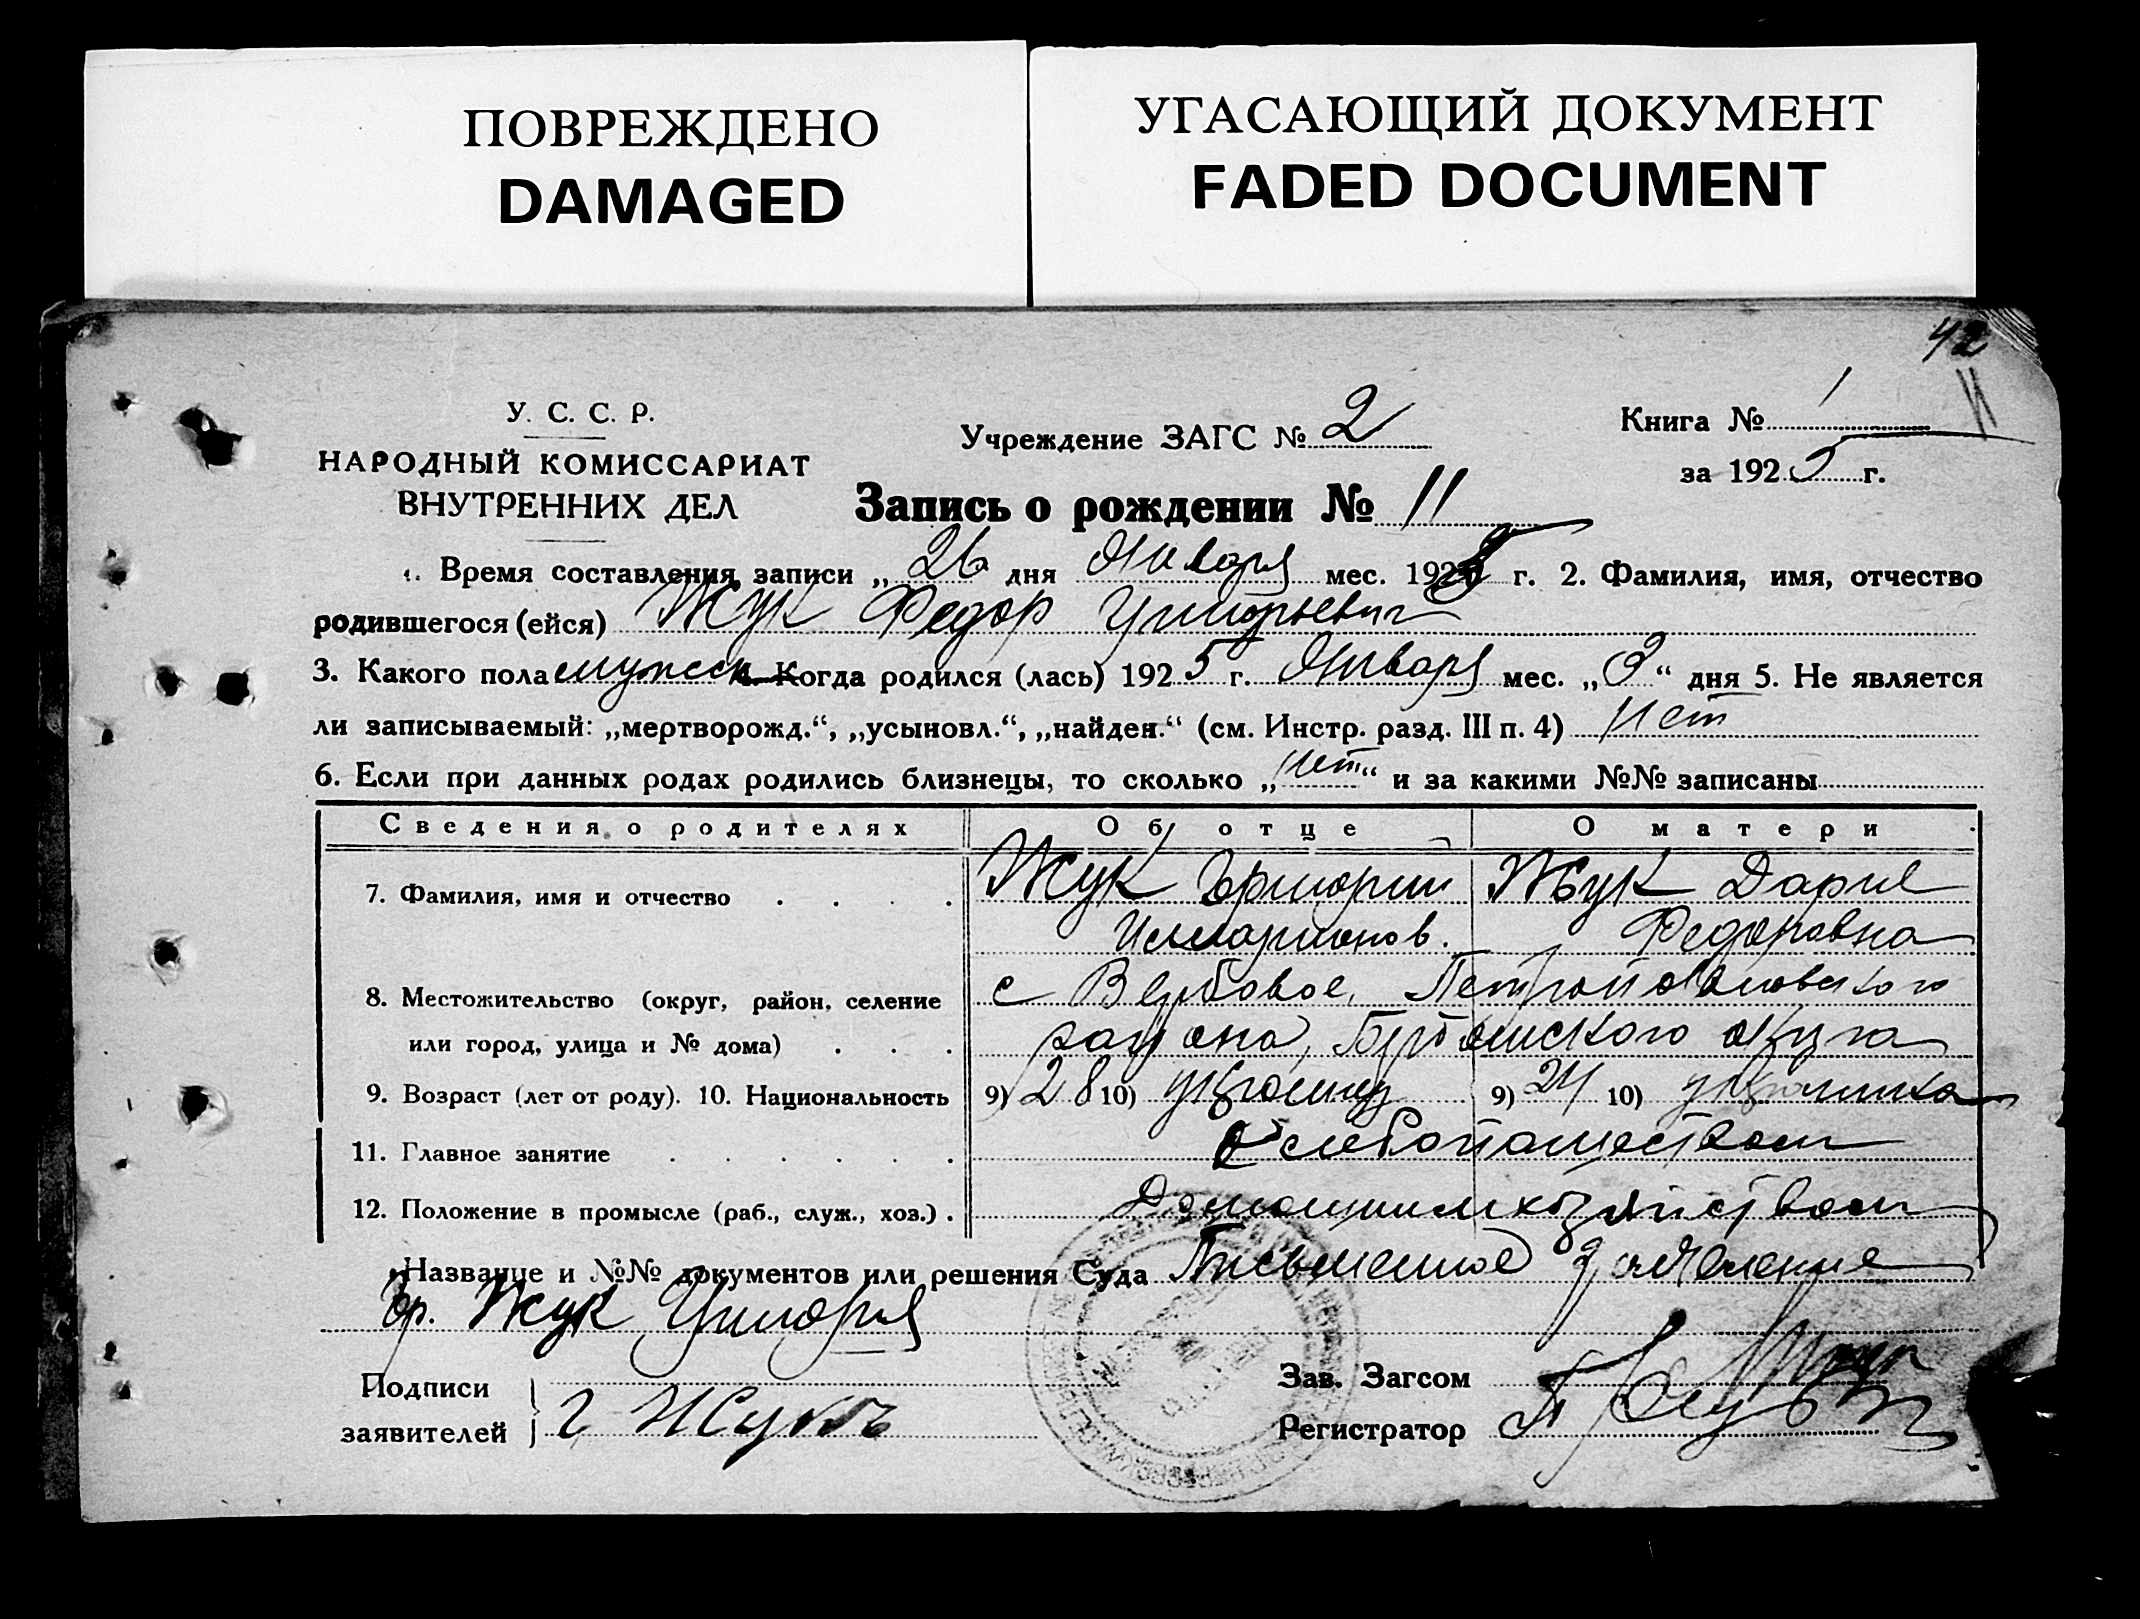 ПОВРЕЖДЕНО
DAMAGED
УГАСАЮЩИЙ ДОКУМЕНТ
FADED DOCUMENT
42
11
У. С. С. Р.
НАРОДНЫЙ КОМИССАРИАТ
ВНУТРЕННИХ ДЕЛ
Учреждение ЗАГС № 2
Книга № 1
за 1925 г.
Запись о рождении № 11
1. Время составления записи „ 26 дня Января мес. 1925 г. 2. Фамилия, имя, отчество
родившегося (ейся) Жук Федор Григорьевич
3. Какого пола мужск 4. Когда родился (лась) 1925 г. Января мес. „ “ дня 5. Не является
ли записываемый: „мертворожд.“, „усыновл.“, „найден.“ (см. Инстр. разд. III п. 4) Нет
6. Если при данных родах родились близнецы, то сколько „ нет “ и за какими №№ записаны
Сведения о родителях Об отце О матери
7. Фамилия, имя и отчество Жук Григорий Жук Дария
Илларионов. Федоровна
8. Местожительство (округ, район, селение с Вербовое, Петропавловского
или город, улица и № дома) района, округа
9. Возраст (лет от роду). 10. Национальность 9) 28 10) украинец 9) 24 10) украинка
11. Главное занятие хлебопашеством
12. Положение в промысле (раб., служ., хоз.) Домашним хозяйством
Название и №№ документов или решения Суда Письменное заявление
Гр. Жук Григория
Подписи
заявителей Г Жукъ
Зав. Загсом
Регистратор